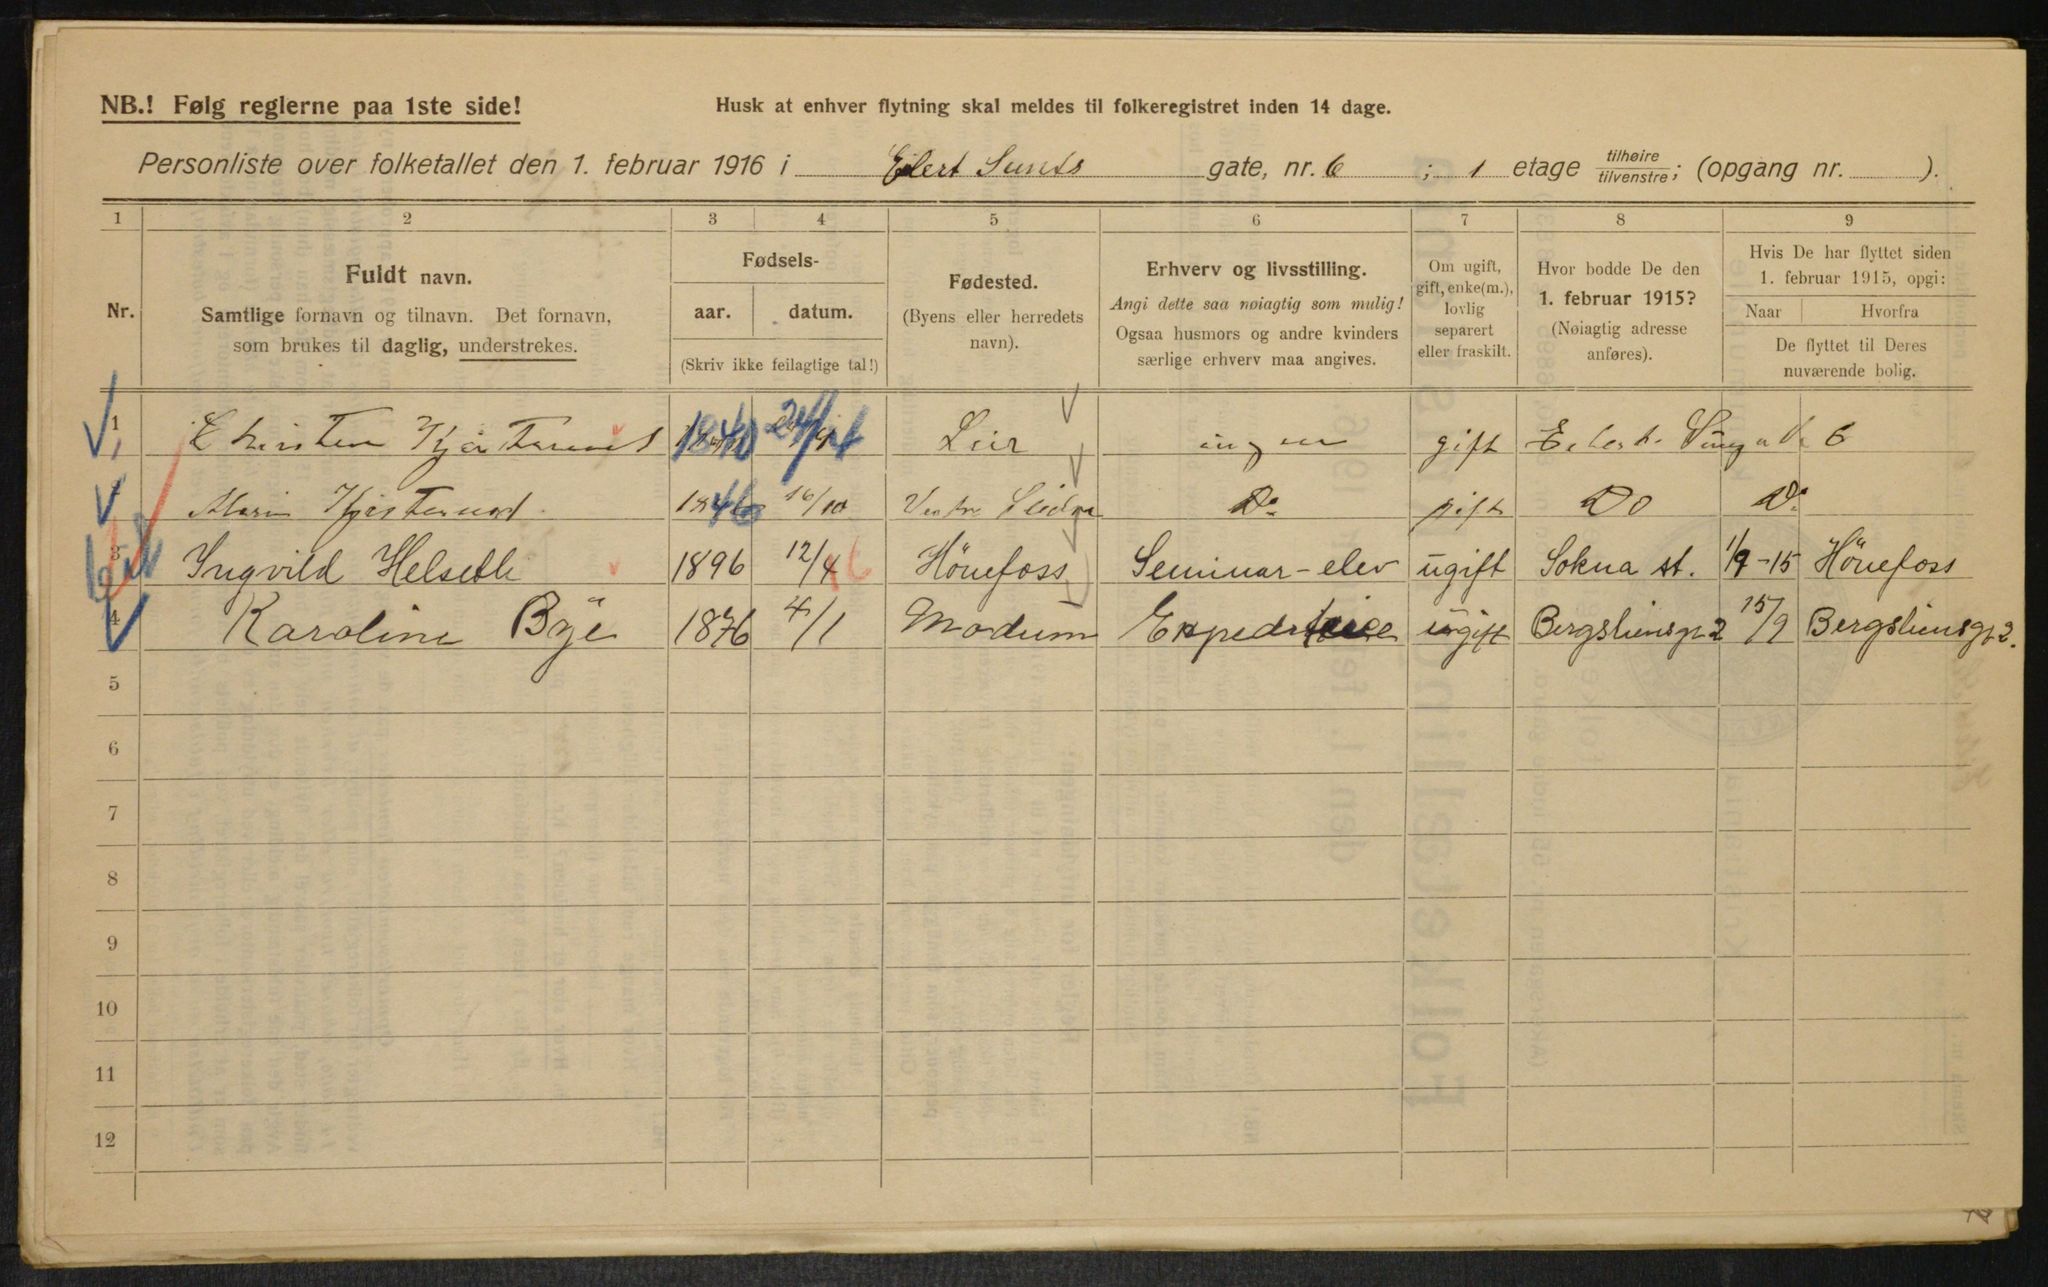 NB.! Følg reglerne paa 1ste side!
Husk at enhver flytning skal meldes til folkeregistret inden 14 dage.
Personliste over folketallet den 1. februar 1916 i Eilert Sunts gate, nr. 6 ; 1 etage tilhøire tilvenstre; (opgang nr. ).
1 2 3 4 5 6 7 8 9
Nr.
Fuldt navn.
Samtlige fornavn og tilnavn. Det fornavn,
som brukes til daglig, understrekes.
Fødsels-
aar. datum.
(Skriv ikke feilagtige tal!)
Fødested.
(Byens eller herredets
navn).
Erhverv og livsstilling.
Angi dette saa nøiagtig som mulig!
Ogsaa husmors og andre kvinders
særlige erhverv maa angives.
Om ugift,
gift, enke(m.),
lovlig
separert
eller fraskilt.
Hvor bodde De den
1. februar 1915?
(Nøiagtig adresse
anføres).
Hvis De har flyttet siden
1. februar 1915, opgi:
Naar Hvorfra
De flyttet til Deres
nuværende bolig.
1 Christen 1840 24/4 Lier ingen gift 6
Marie 1846 16/10 Vestre Slidre Do gift Do Do
3 Ingvild Helseth 1896 12/4 Hönefoss Seminar-elev ugift Sokna st. 1/9-15 Hönefoss
4 Karoline Bye 1876 4/1 Modum Expeditrice ugift Bergsliensgt 2 15/9 Bergsliensgt 2.
5
6
7
8
9
10
11
12